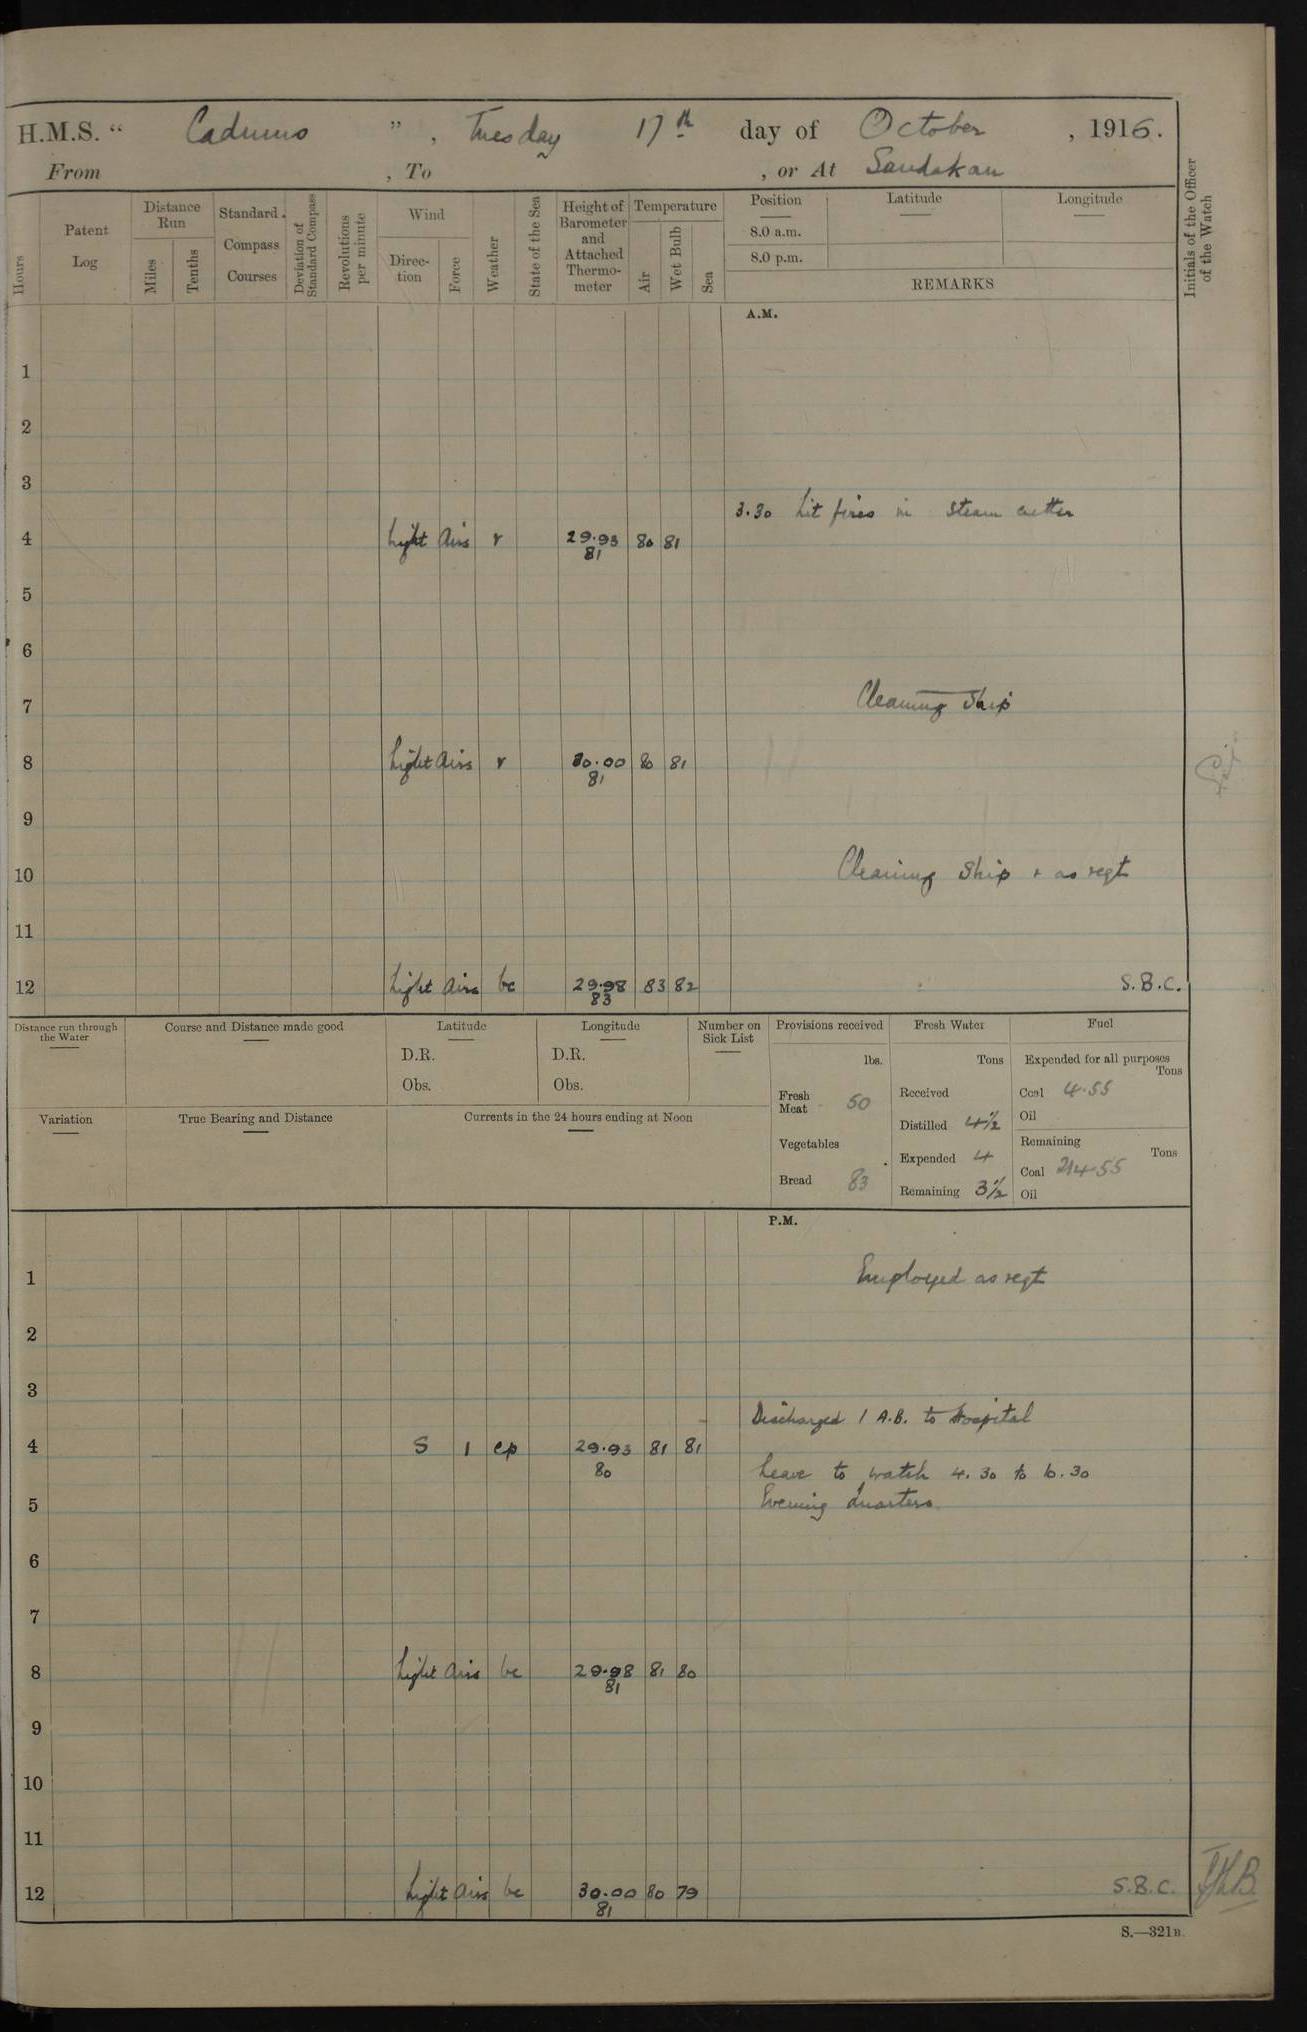 H.M.S. “ Cadmus ” , Tuesday 17th day of October , 1916.
From , To , or At Sandakan
Hours
Patent Log
Distance Run
Miles
Tenths
Standard Compass Courses
Deviation of Standard Compass
Revolutions per minute
Wind
Direction
Force
Weather
State of the Sea
Height of Barometer and Attached Thermometer
Temperature
Air
Wet Bulb
Sea
Position
8.0 a.m.
8.0 p.m.
Latitude
Longitude
REMARKS
Initials of the Officer of the Watch
A.M.
1
2
3
3.30 Lit fires in steam cutter
4 Light Airs r 29.93 80 81
81
5
6
7 Cleaning Ship
8 Light Airs r 30.00 80 81
81
9
10 Cleaning Ship & as reqt
11
12 Light Airs bc 29.98 83 82 S.B.C.
83
Distance run through the Water
Course and Distance made good
Latitude
D.R.
Obs.
Longitude
D.R.
Obs.
Number on Sick List
Variation
True Bearing and Distance
Currents in the 24 hours ending at Noon
Provisions received
lbs.
Fresh Meat 50
Vegetables
Bread 83
Fresh Water
Tons
Received
Distilled 4½
Expended 4
Remaining 3½
Fuel
Expended for all purposes
Tons
Coal 4.55
Oil
Remaining
Tons
Coal 214.55
Oil
P.M.
1 Employed as reqt
2
3
Discharged 1 A.B. to Hospital
4 S 1 cp 29.93 81 81
80
Leave to watch 4.30 to 6.30
5 Evening Quarters
6
7
8 Light Airs bc 29.98 81 80
81
9
10
11
12 Light Airs bc 30.00 80 79 S.B.C.
81
S.—321B.